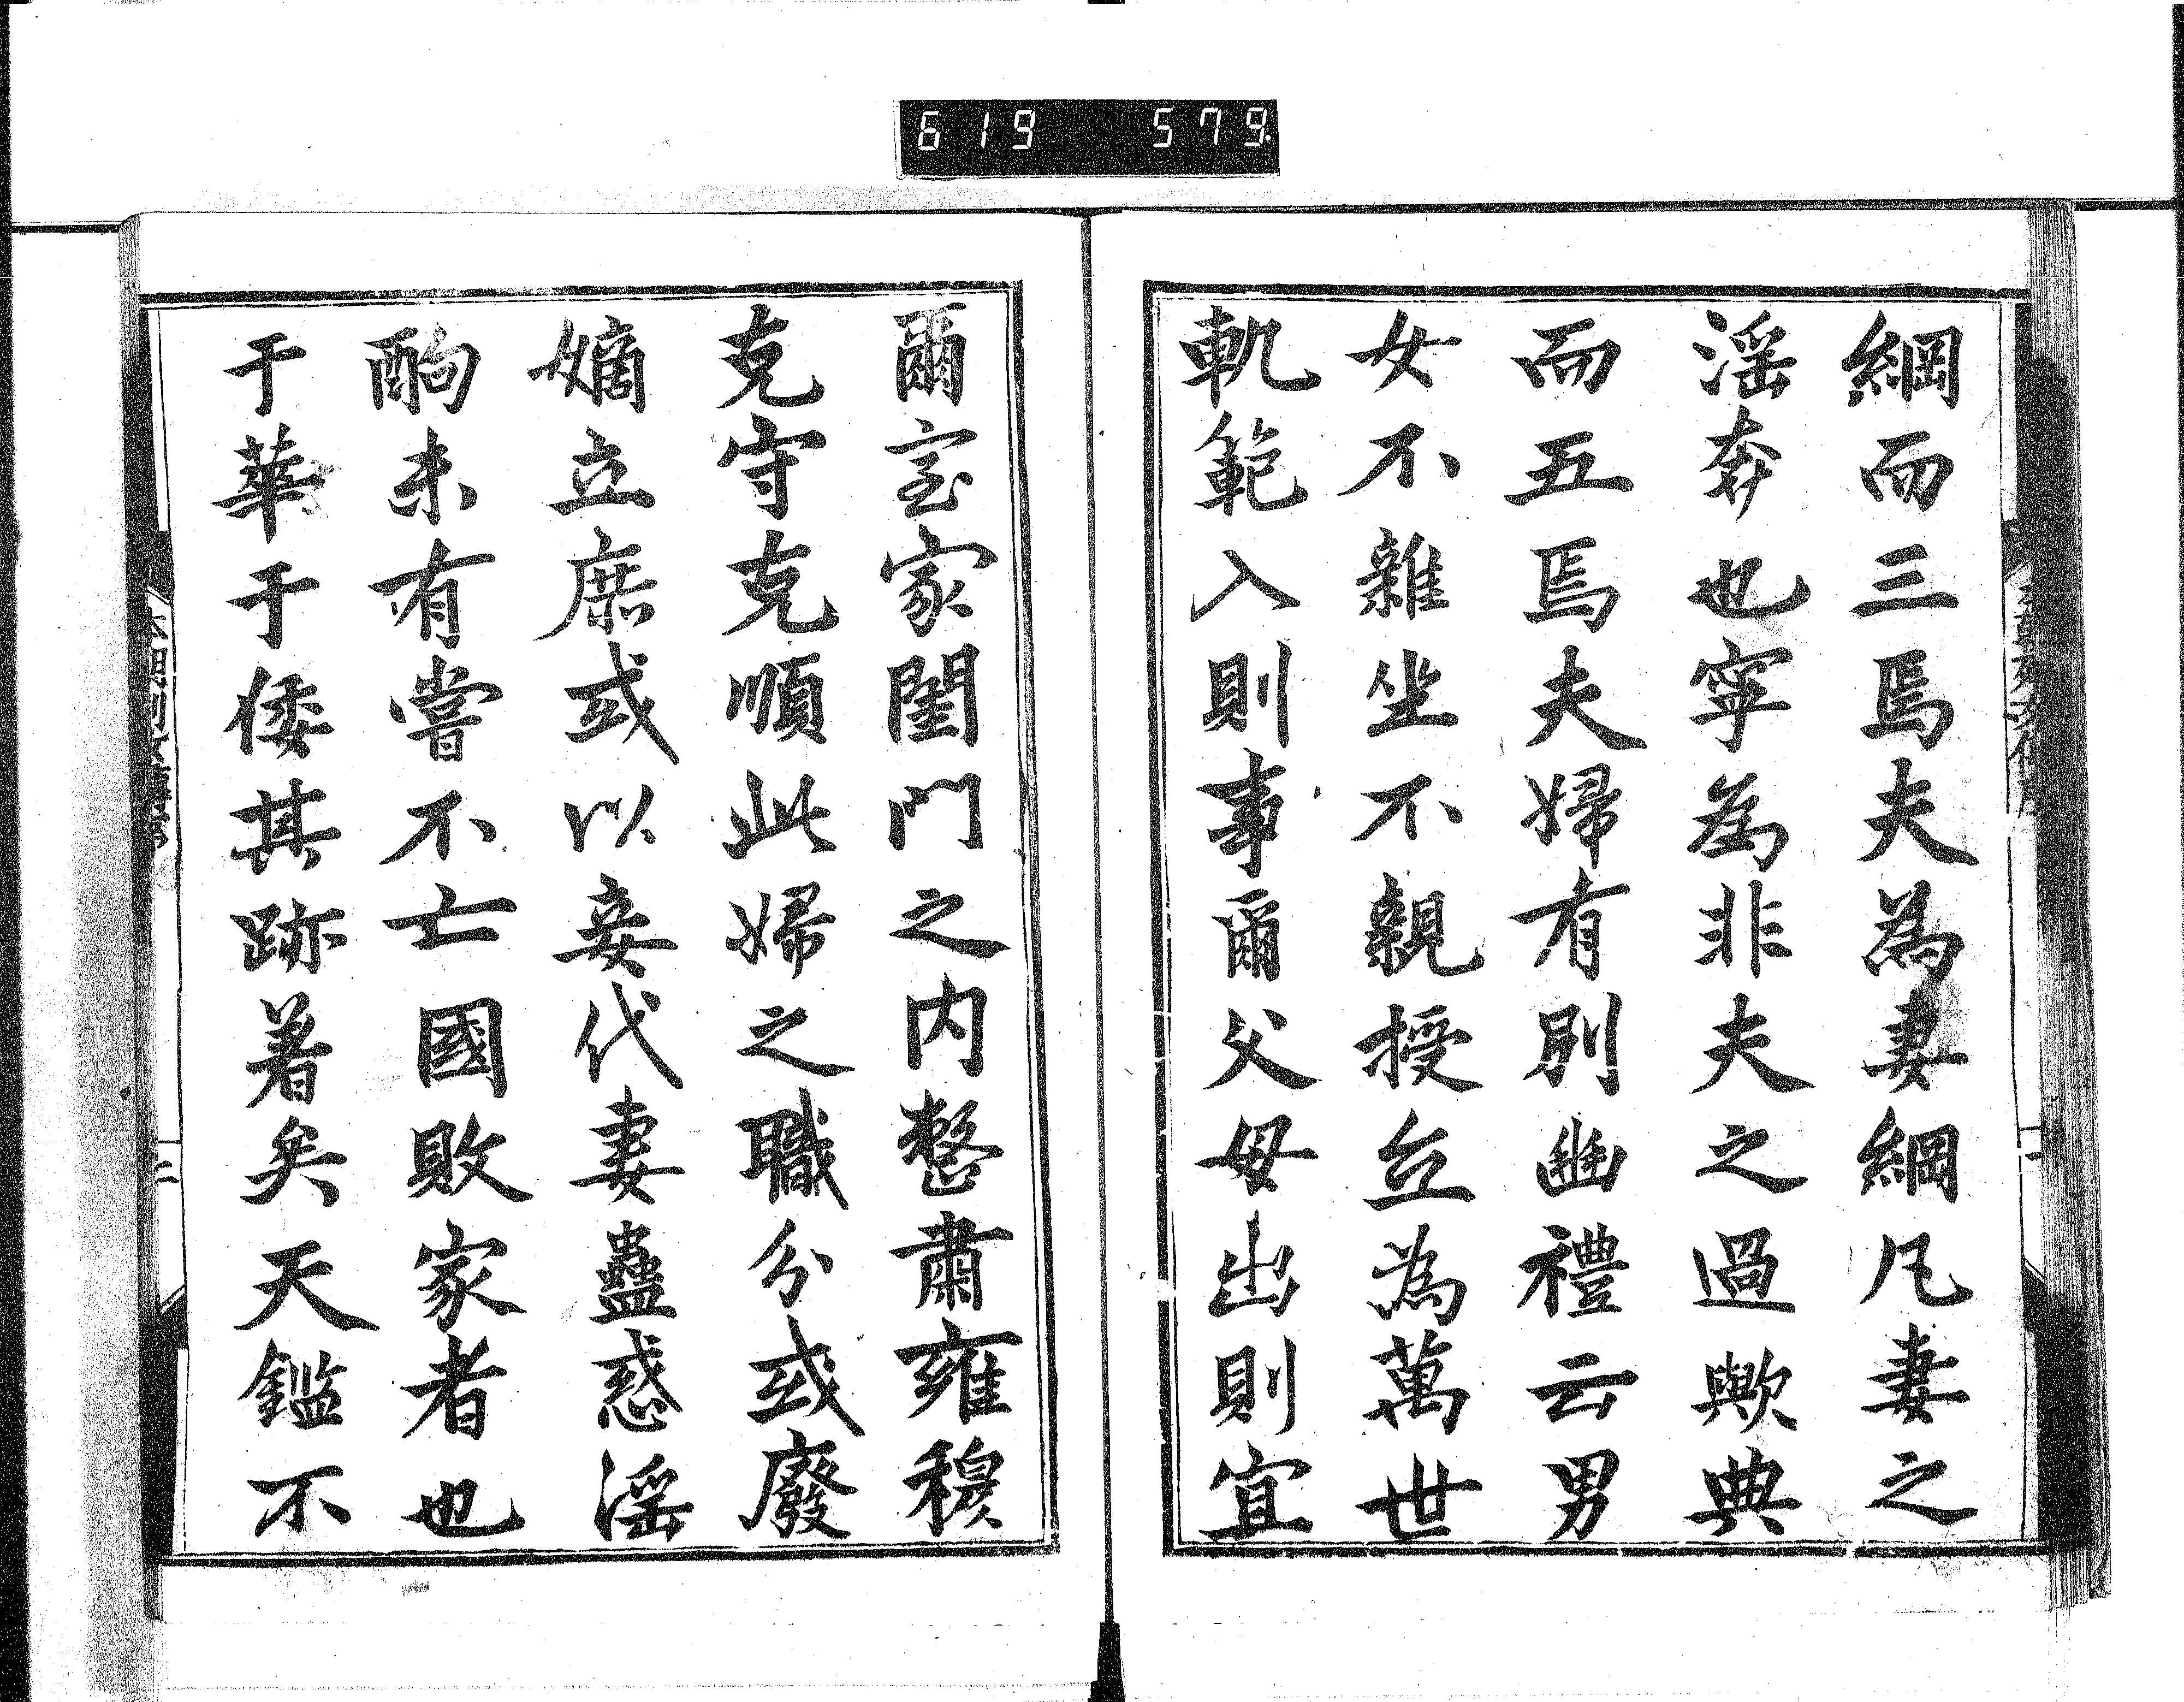 619 579
綱而三焉夫為妻綱凡妻之
淫奔也寧為非夫之過歟典
而五焉夫婦有別幽禮云男
女不雜坐不親授立為萬世
軌範入則事爾父母出則宜
爾室家閨門之内整肅雍穆
克守克順此婦之職分或廢
嫡立庶或以妾代妻蠱惑淫
酗未有嘗不亡國敗家者也
于華于倭其跡著矣天鑑不